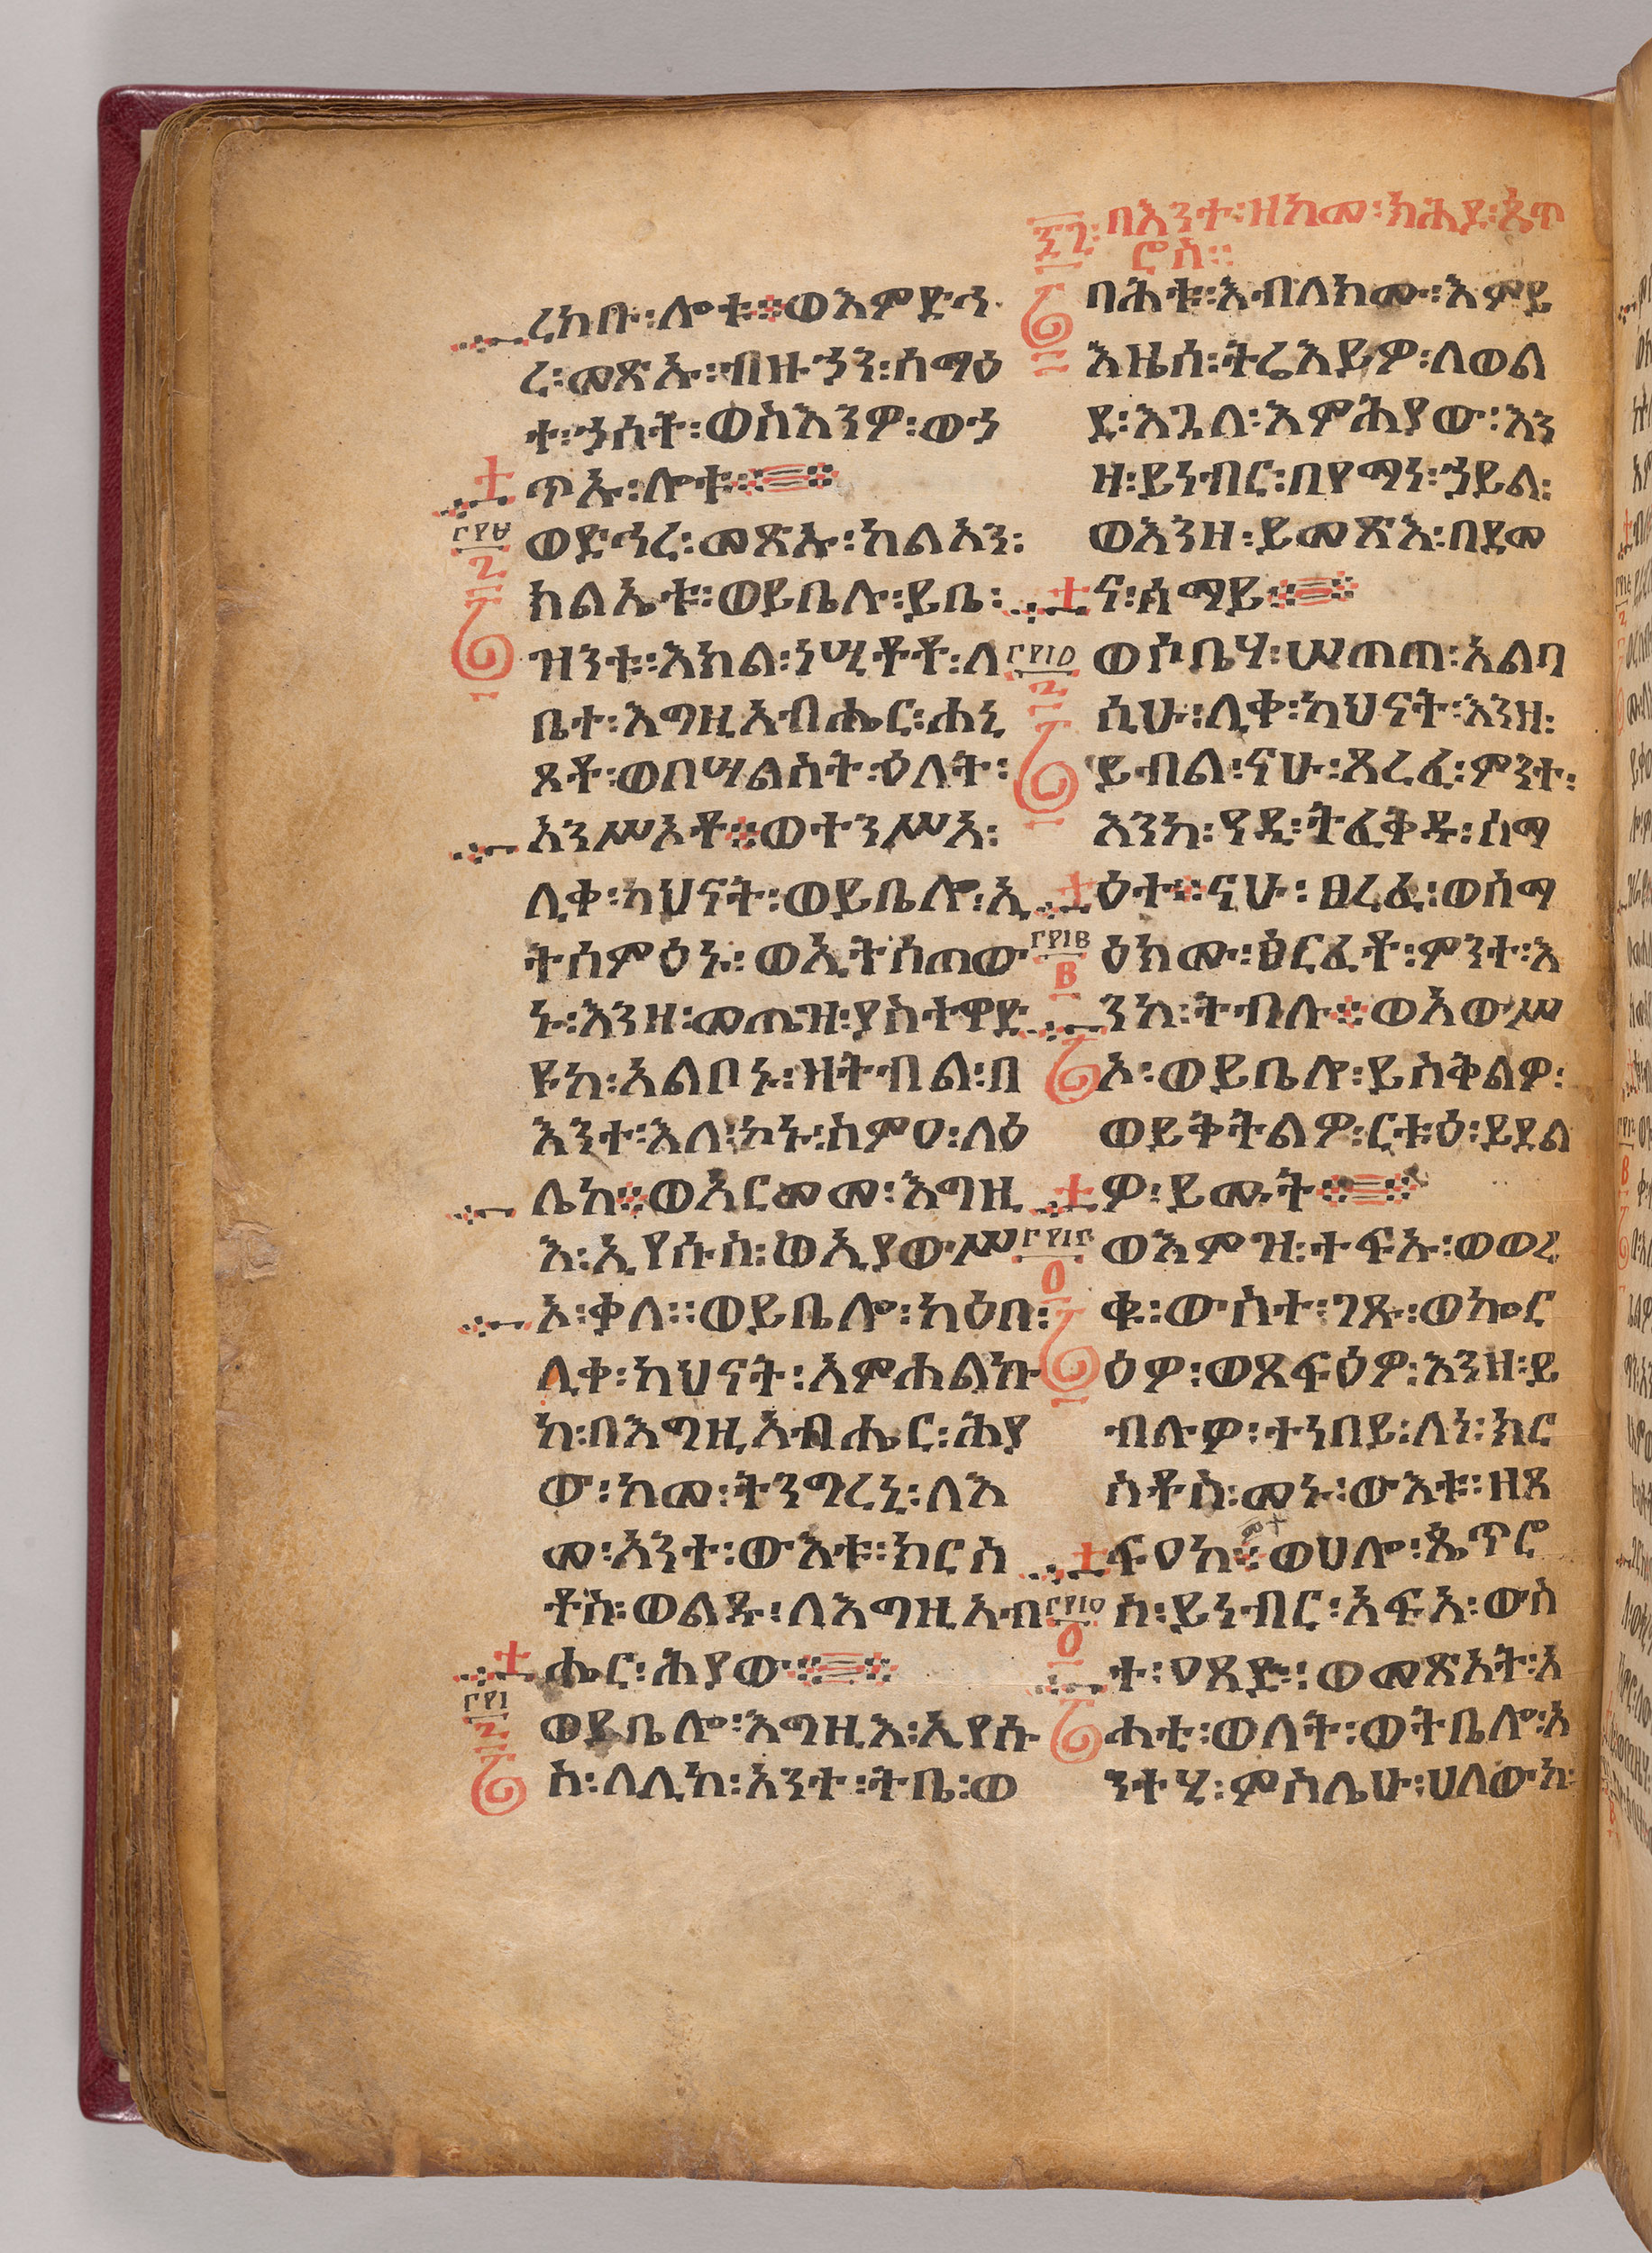 ረከቡ፡ሎቱ፨ወእምድኅ
ረ፡መጽኡ፡ብዙኃን፡ሰማዕ
ተ፡ኃሰት፡ወስእንዎ፡ወኃ
ጥኡ፡ሎቱ፨
ወድኅረ፡መጽኡ፡ከልአን፡
ክልኤቱ፡ወይቤሉ፡ይቤ፡
ዝንቱ፡እክል፡ነሢቶቶ፡ለ
ቤተ፡እግዚአብሔር፡ሐኒ
ጾቶ፡ወበሣልስት፡ዕለት፡
አንሥኦቶ፨ወተንሥአ፡
ሊቀ፡ካህናት፡ወይቤሎ፡ኢ
ትሰምዕኑ፡ወኢትሰጠው
ኑ፡እንዘ፡መጤዝ፡ያስተዋድ
ዩከ፡አልቦኑ፡ዘትብል፡በ
እንተ፡እለ፡ኮኑ፡ስምዐ፡ለዕ
ሌከ፨ወአርመመ፡እግዚ
እ፡ኢየሱስ፡ወኢያውሥ
አ፡ቃለ፡፡ወይቤሎ፡ካዕበ፡
ሊቀ፡ካህናት፡አምሐልኩ
ከ፡በእግዚአብሔር፡ሕያ
ው፡ከመ፡ትንግረኒ፡ለእ
መ፡አንተ፡ውእቱ፡ክርስ
ቶስ፡ወልዱ፡ለእግዚአብ
ሔር፡ሕያው፨
ወይቤሎ፡እግዚእ፡ኢየሱ
ስ፡ለሊከ፡አንተ፡ትቤ፡ወ
፷፪፡በእንተ፡ዘከመ፡ክሕደ፡ጴጥ
ሮስ፡፡
ባሕቱ፡እብለክሙ፡እምይ
እዜሰ፡ትሬእይዎ፡ለወል
ደ፡እጓለ፡እምሕያው፡እን
ዘ፡ይነብር፡በየማነ፡ኃይል፡
ወእንዘ፡ይመጽእ፡በደመ
ና፡ሰማይ፨
ወሶቤሃ፡ሠጠጠ፡አልባ
ሲሁ፡ሊቀ፡ካህናት፡እንዘ፡
ይብል፡ናሁ፡ጸረፈ፡ምንተ፡
እንከ፡ዓዲ፡ትፈቅዱ፡ሰማ
ዕተ፨ናሁ፡ፀረፈ፡ወሰማ
ዕክሙ፡ፅርፈቶ፡ምንተ፡እ
ንከ፡ትብሉ፨ወአውሥ
ኡ፡ወይቤሉ፡ይስቅልዎ፡
ወይቅትልዎ፡ርቱዕ፡ይደል
ዎ፡ይሙት፨
ወእምዝ፡ተፍኡ፡ወወረ
ቁ፡ውስተ፡ገጹ፡ወኰር
ዕዎ፡ወጸፍዕዎ፡እንዘ፡ይ
ብሉዎ፡ተነበይ፡ለነ፡ክር
ስቶስ፡መኑ፡ውእቱ፡ዘጸ
ፍዐከ፨ወሀሎ፡ጴጥሮ
ስ፡ይነብር፡አፍአ፡ውስ
ተ፡ዐጸድ፡፡ወመጽአት፡አ
ሐቲ፡ወለት፡ወትቤሎ፡አ
ንተሂ፡ምስሌሁ፡ሀለውከ፡